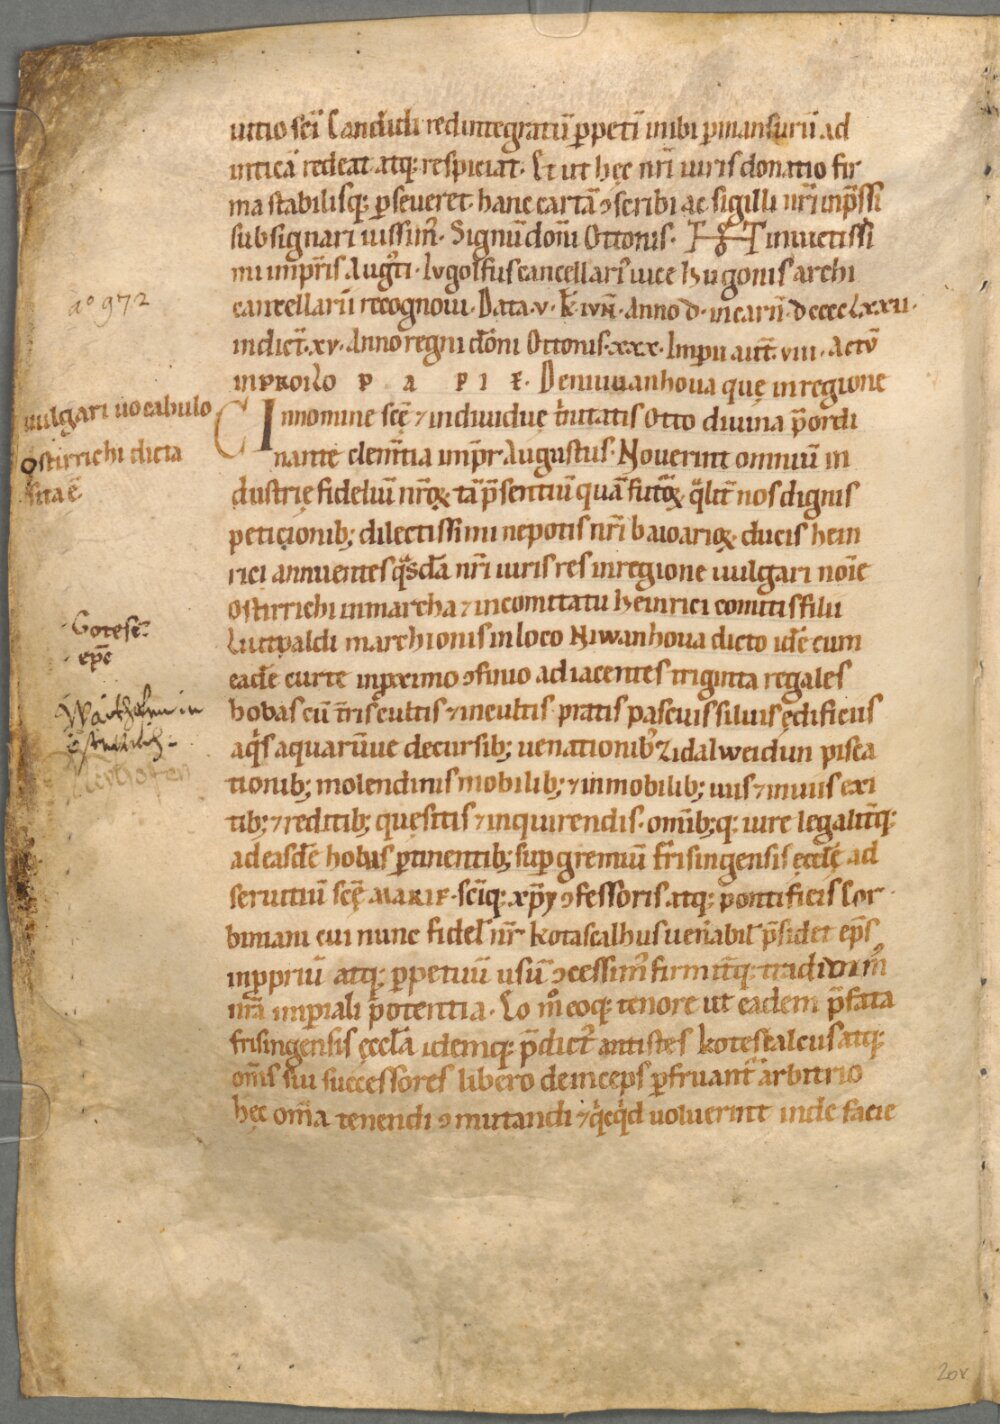 uitio scī Candidi redintegratiū ꝑpetī inibi ꝑmansurū ad
inticā redeat atq; respiciat. Et ut hęc nr̄i iuris donatio fir
ma stabilisq; ꝑseueret hanc cartā ꝯscribi ac sigilli nr̄i inp̄ssi
subsignari iussimꝰ. Signū dom̄i Ottonis. inuictissi
mi imꝑris Augꝰti. Lvgolfus cancellariꝰ uice hugonis archi
a° 972
cancellarii recognoui. Data .v. k̄. ivn̄. Anno d. incarn̄. dcccc Lxxii.
indict̄. xv. Anno regni dōni Ottonis. xxx. Imperii aut̄. viii. Actv̄
in BROILO P A P I E. De niuuanhoua quę in regione
uulgari uocabulo
ostirrichi dicta
sita ē
In nomine scę̄ ⁊ indiuiduę t̄nitatis Otto diuina p̄ordi
nante clem̄tia imꝑr Augustus. Nouerint omniū in
dustrię fideliū nr̄oꝝ tā p̄sentiū quā futōꝝ q̄lit̄ nos dignis
peticionib; dilectissimi nepotis nr̄i baioarioꝝ ducis hein
rici annuentes qͣsdā nr̄i iuris res in regione uulgari noīe
Ostirrichi in marcha ⁊ in comitatu heinrici comitis filii
Liutpaldi marchionis in loco Niwanhoua dicto idē cum
Gotesc.
epē
eadē curte in proximo ꝯfinio adiacentes triginta regales
hobas cū t̄ris cultis ⁊ incultis pratis pascuis siluis ędificiis
aqͥs aquarūue decursib; uenationibꝰ zidalweidun pisca
tionib; molendinis mobilib; ⁊ inmobilib; uiis ⁊ inuiis exi
tib; ⁊ reditib; quęsitis ⁊ inquirendis. omībq; iure legalit̄q;
ad easdē hobas ꝑtinentib; sup gremiū frisingensis ęcclę̄ ad
seruitiū scę̄ MARIE. scīq; xp̄i ꝯfessoris atq; pontificis Cor
biniani cui nunc fidel̄ nr̄ kotascalhus uen̄abil̄ p̄sidet ep̄s
in ꝓpriū atq; ꝑpetuū usū ꝯcessimꝰ firmit̄q; tradidimꝰ
nr̄a imꝑiali potentia. Eo m̊ eoq; tenore ut eadem p̄fata
frisingensis ęccl̄a idemq; p̄dictꝰ antistes kotescalcus atq;
om̄s sui successores libero deinceps ꝑfruant̄ arbitrio
hęc om̄ia tenendi ꝯmutandi ⁊ qͥcqͥd uoluerint inde facie
20v